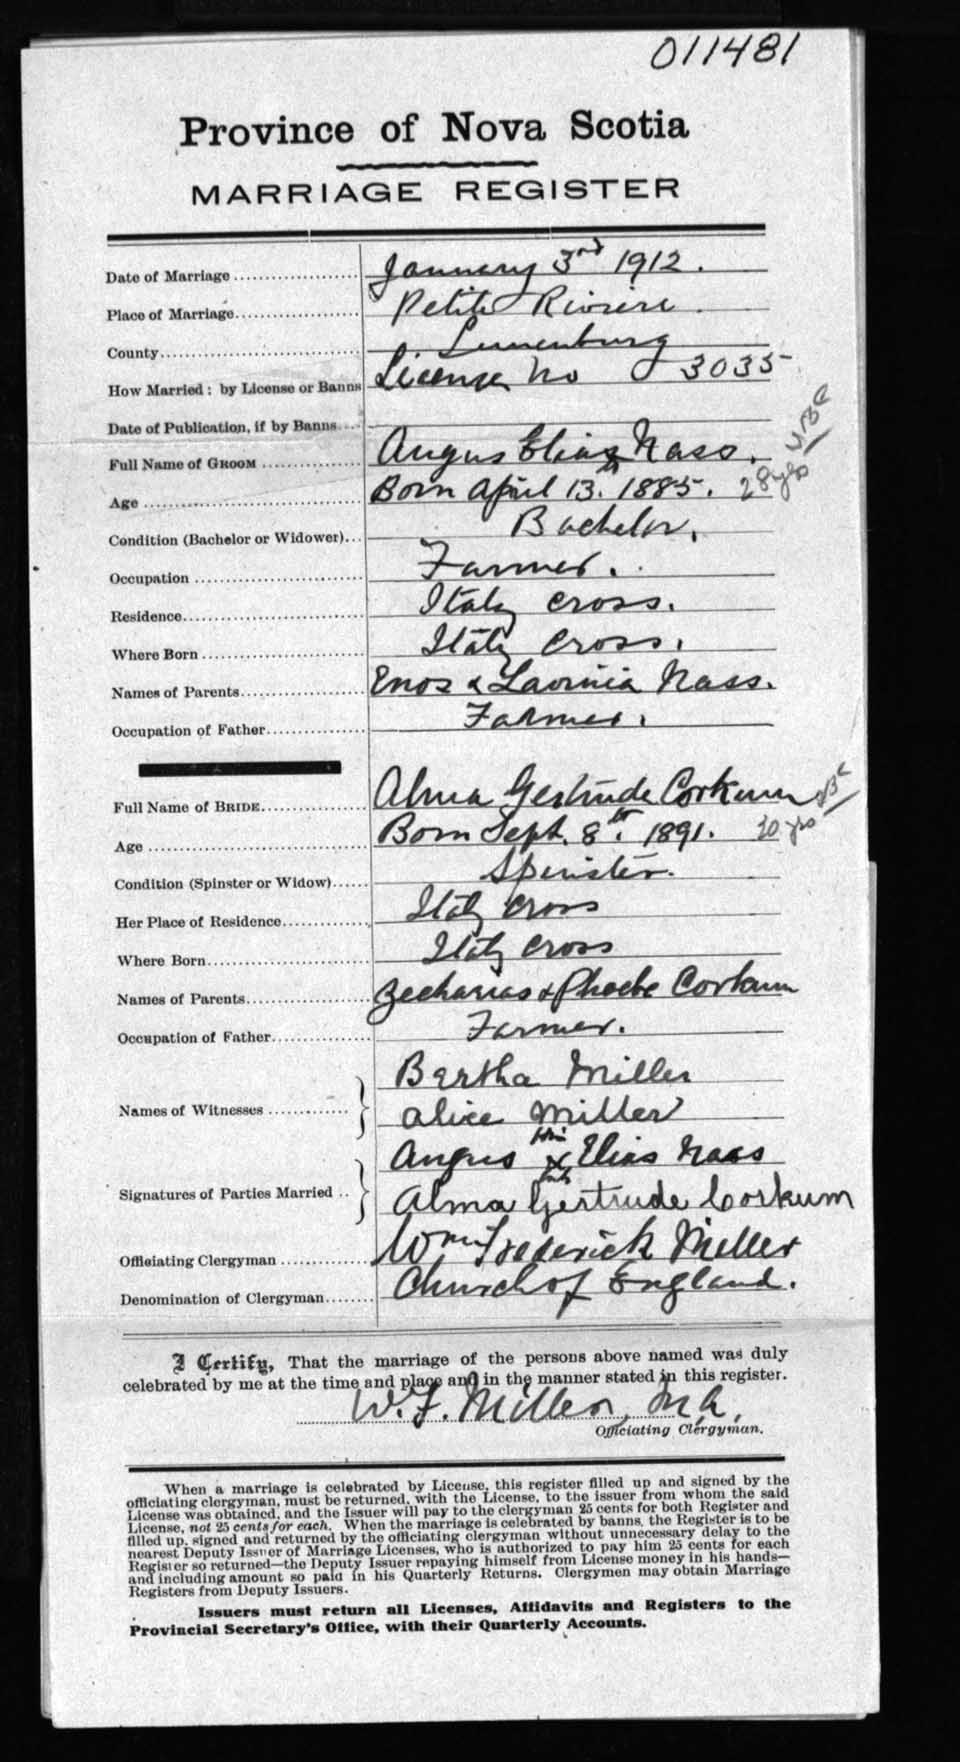 011481
Province of Nova Scotia
MARRIAGE REGISTER
Date of Marriage January 3rd 1912.
Place of Marriage Petite Riviere.
County Lunenburg
How Married: by License or Banns License No 3035
Date of Publication, if by Banns
Full Name of GROOM Angus Elias Nass.
Age Born April 13th. 1885. 28 yrs
Condition (Bachelor or Widower) Bachelor.
Occupation Farmer.
Residence Italy Cross.
Where Born Italy Cross.
Names of Parents Enos & Lavinia Nass.
Occupation of Father Farmer.
Full Name of BRIDE Alma Gertrude Corkum
Age Born Sept. 8th. 1891. 20 yrs
Condition (Spinster or Widow) Spinster.
Her Place of Residence Italy Cross
Where Born Italy Cross
Names of Parents Zecharias & Phoebe Corkum
Occupation of Father Farmer.
Bertha Miller
Names of Witnesses
Alice Miller
his
Angus X Elias Naas
Signatures of Parties Married
Alma Gertrude Corkum
Officiating Clergyman Wm Frederick Miller
Denomination of Clergyman Church of England.
I Certify, That the marriage of the persons above named was duly
celebrated by me at the time and place and in the manner stated in this register.
W. F. Miller, M.A.
Officiating Clergyman.
When a marriage is celebrated by License, this register filled up and signed by the
officiating clergyman, must be returned, with the License, to the issuer from whom the said
License was obtained, and the Issuer will pay to the clergyman 25 cents for both Register and
License, not 25 cents for each. When the marriage is celebrated by banns, the Register is to be
filled up, signed and returned by the officiating clergyman without unnecessary delay to the
nearest Deputy Issuer of Marriage Licenses, who is authorized to pay him 25 cents for each
Register so returned—the Deputy Issuer repaying himself from License money in his hands—
and including amount so paid in his Quarterly Returns. Clergymen may obtain Marriage
Registers from Deputy Issuers.
Issuers must return all Licenses, Affidavits and Registers to the
Provincial Secretary's Office, with their Quarterly Accounts.